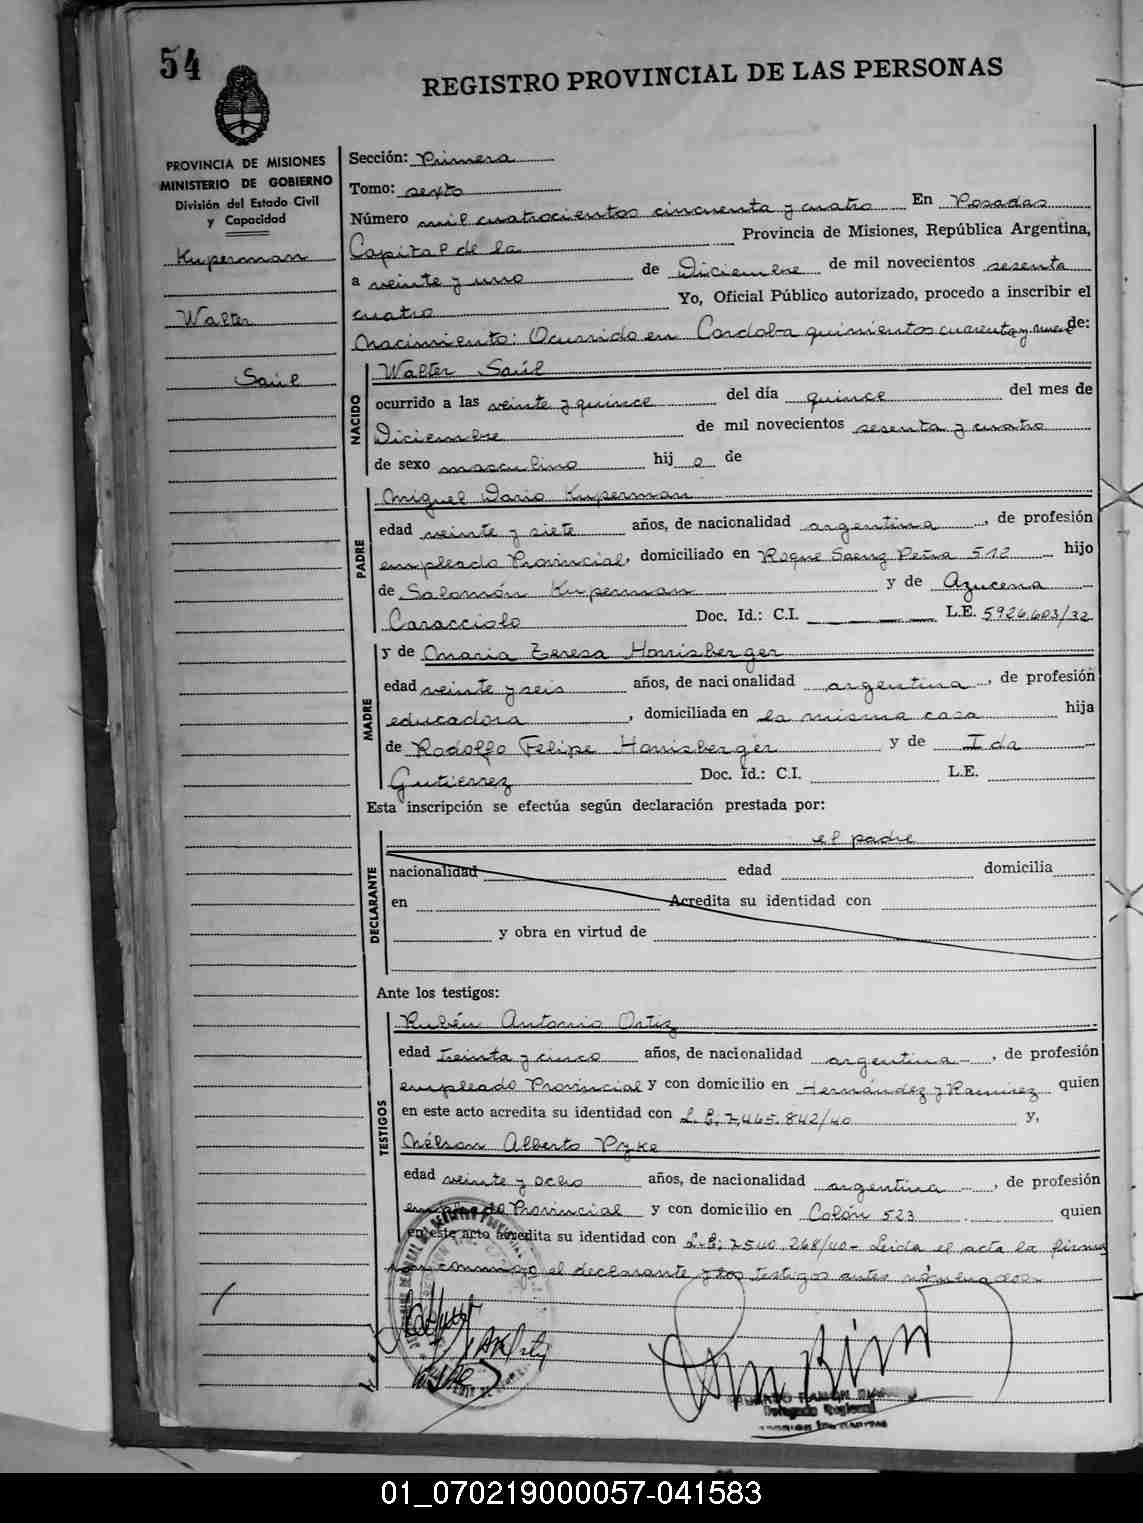 54
REGISTRO PROVINCIAL DE LAS PERSONAS
PROVINCIA DE MISIONES
MINISTERIO DE GOBIERNO
División del Estado Civil
y Capacidad
Kuperman
Walter
Saúl
Sección: Primera
Tomo: sexto
Número mil cuatrocientos cincuenta y cuatro En Posadas
Capital de la Provincia de Misiones, República Argentina,
a veinte y uno de Diciembre de mil novecientos sesenta
cuatro Yo, Oficial Público autorizado, procedo a inscribir el
Nacimiento: Ocurrido en Cordoba quinientos cuarenta y nueve de:
NACIDO
Walter Saúl
ocurrido a las veinte y quince del día quince del mes de
Diciembre de mil novecientos sesenta y cuatro
de sexo masculino hij o de
PADRE
Miguel Dario Kuperman
edad veinte y siete años, de nacionalidad argentina, de profesión
empleado Provincial, domiciliado en Roque Saenz Peña 512 hijo
de Salomón Kuperman y de Azucena
Caracciolo Doc. Id.: C.I. L.E. 5926.603/32
MADRE
y de Maria Teresa Horrisberger
edad veinte y seis años, de nacionalidad argentina, de profesión
educadora, domiciliada en la misma casa hija
de Rodolfo Felipe Horrisberger y de Ida
Gutiérrez Doc. Id.: C.I. L.E.
Esta inscripción se efectúa según declaración prestada por:
DECLARANTE
el padre
nacionalidad edad domicilia
en Acredita su identidad con
y obra en virtud de
Ante los testigos:
TESTIGOS
Rubén Antonio Ortiz
edad treinta y cinco años, de nacionalidad argentina, de profesión
empleado Provincial y con domicilio en Hernández y Ramirez quien
en este acto acredita su identidad con L.E; 7.465.842/40 y,
Nélson Alberto Pyke
edad veinte y ocho años, de nacionalidad argentina, de profesión
empleado Provincial y con domicilio en Colón 523 quien
en este acto acredita su identidad con L.E; 7540.268/40- Leida el acta la firman
con conmigo el declarante y los testigos antes nómenados-
Delegado Regional
01_070219000057-041583